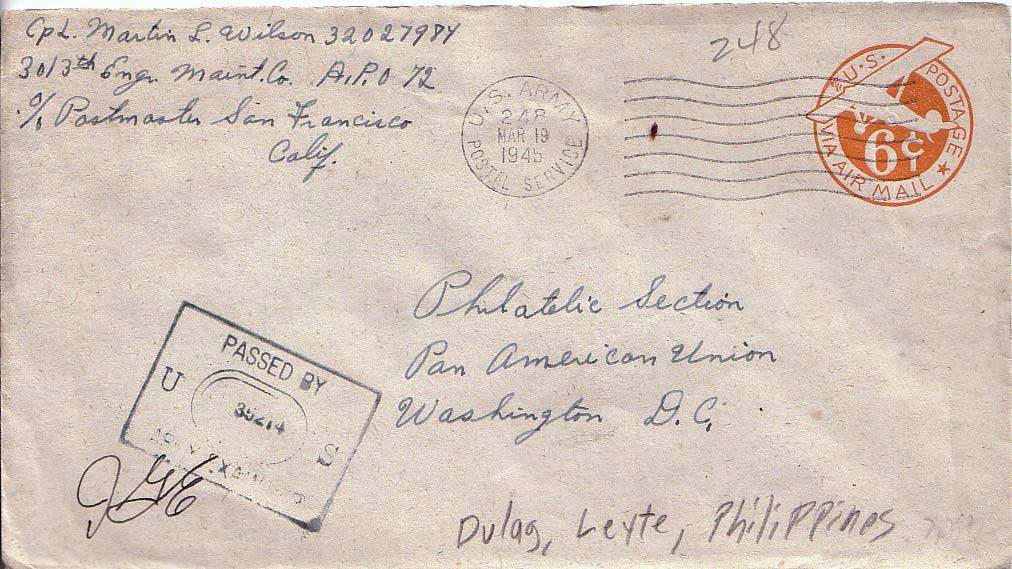 Cpl. Martin L. Wilson 32027984
3013th Engr. Maint. Co. A.P.O 72
c/o Postmaster San Francisco
Calif.
248
U.S. ARMY
248
MAR 19
1945
POSTAL SERVICE
U.S. POSTAGE
6¢
VIA AIR MAIL
Philatelic Section
Pan American Union
Washington D.C.
PASSED BY
U 35274 S
ARMY EXAMINER
Dulag, Leyte, Philippines